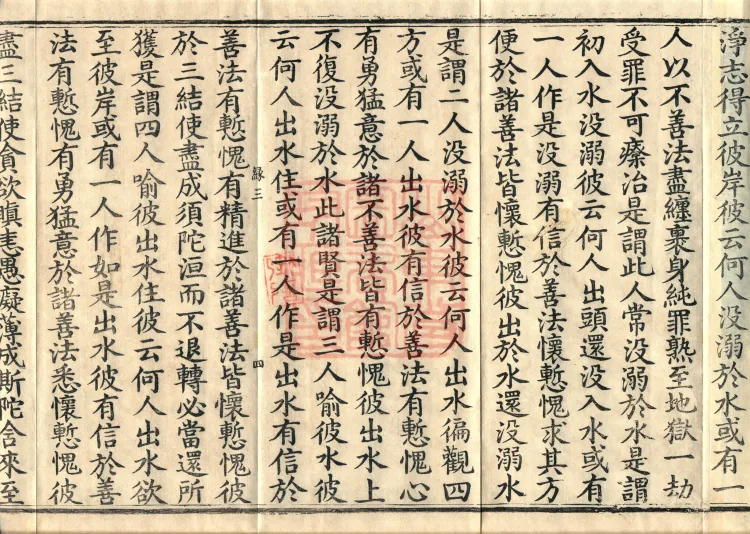 淨志得立彼岸彼云何人没溺於水或有一
人以不善法盡纏裹身純罪熟至地獄一劫
受罪不可療治是謂此人常没溺於水是謂
初入水没溺彼云何人出頭還没入水或有
一人作是没溺有信於善法懷慙愧求其方
便於諸善法皆懷慙愧彼出於水還没溺水
是謂二人没溺於水彼云何人出水徧觀四
方或有一人出水彼有信於善法有慙愧心
有勇猛意於諸不善法皆有慙愧彼出水上
不復没溺於水此諸賢是謂三人喻彼水彼
云何人出水住或有一人作是出水有信於
緣三
四
善法有慙愧有精進於諸善法皆懷慙愧彼
於三結使盡成須陀洹而不退轉必當還所
獲是謂四人喻彼出水住彼云何人出水欲
至彼岸或有一人作如是出水彼有信於善
法有慙愧有勇猛意於諸善法悉懷慙愧彼
盡三結使貪欲瞋恚愚癡薄成斯陀含來至